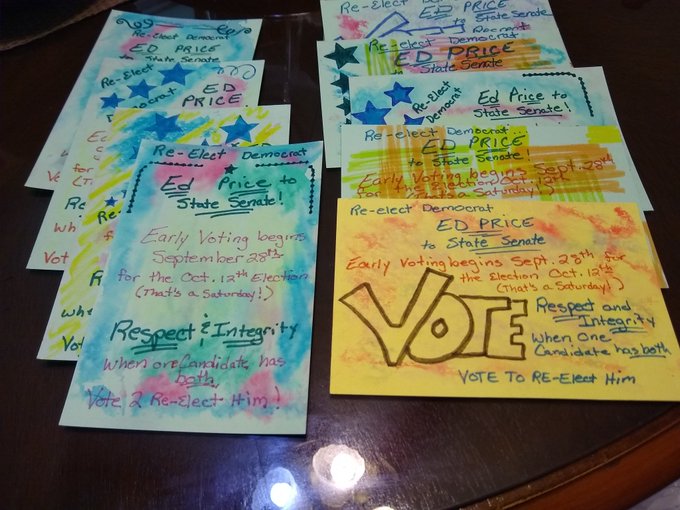 Re-Elect Democrat
ED PRICE
to State Senate
Re-Elect
Democrat
ED
PRICE
Re-Elect Democrat
Ed Price to
State Senate!
Early Voting begins
September 28th
for the Oct. 12th Election
(That's a Saturday!)
Respect & Integrity
when one Candidate has
both,
Vote 2 Re-Elect Him!
Re-Elect
ED PRICE
to State Senate
Re-Elect Democrat
ED PRICE
to State Senate
Re-Elect
Democrat
Ed Price to
State Senate!
Re-Elect Democrat...
ED PRICE
to State Senate!
Early Voting begins Sept. 28th
for the Election Oct. 12th
(That's a Saturday!)
Re-elect Democrat
ED PRICE
to State Senate
Early Voting begins Sept. 28th for
the Election Oct. 12th
(That's a Saturday!)
VOTE
Respect and
Integrity
When One
Candidate has both
VOTE TO RE-Elect Him